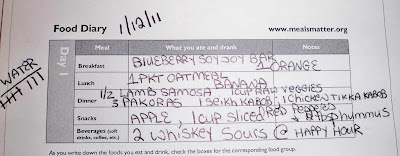 Food Diary 1/12/11 www.mealsmatter.org
Day 1
Meal What you ate and drank Notes
Breakfast BLUEBERRY SOY JOY BAR 1 ORANGE
WATER
Lunch 1 PKT OATMEAL BANANA
1/2 LAMB SAMOSA 1 cup raw veggies
Dinner 3 PAKORAS 1 SEIKH KABOB 1 CHICKEN TIKKA KABOB
Snacks APPLE, 1 cup sliced RED PEPPERS + 2 tbsp hummus
Beverages (soft drinks, coffee, etc.) 2 WHISKEY SOURS @ HAPPY HOUR
As you write down the foods you eat and drink, check the boxes for the corresponding food group.